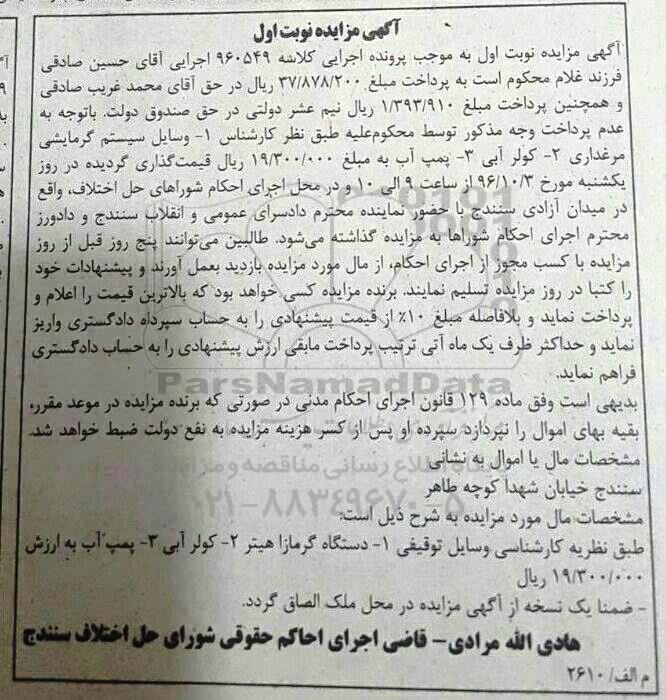 آگهی مزایده نوبت اول
آگهی مزایده نوبت اول به موجب پرونده اجرایی کلاسه ۹۶۰۵۴۹ اجرایی آقای حسین صادقی
فرزند غلام محکوم است به پرداخت مبلغ ۳۷/۸۷۸/۲۰۰ ریال در حق آقای محمد غریب صادقی
و همچنین پرداخت مبلغ ۱/۳۹۳/۹۱۰ ریال نیم عشر دولتی در حق صندوق دولت. باتوجه به
عدم پرداخت وجه مذکور توسط محکوم‌علیه طبق نظر کارشناس ۱- وسایل سیستم گرمایشی
مرغداری ۲- کولر آبی ۳- پمپ آب به مبلغ ۱۹/۳۰۰/۰۰۰ ریال قیمت‌گذاری گردیده در روز
یکشنبه مورخ ۹۶/۱۰/۳ از ساعت ۹ الی ۱۰ و در محل اجرای احکام شوراهای حل اختلاف، واقع
در میدان آزادی سنندج با حضور نماینده محترم دادسرای عمومی و انقلاب سنندج و دادورز
محترم اجرای احکام شوراها به مزایده گذاشته می‌شود. طالبین می‌توانند پنج روز قبل از روز
مزایده با کسب مجوز از اجرای احکام، از مال مورد مزایده بازدید بعمل آورند و پیشنهادات خود
را کتبا در روز مزایده تسلیم نمایند. برنده مزایده کسی خواهد بود که بالاترین قیمت را اعلام و
پرداخت نماید و بلافاصله مبلغ ۱۰٪ از قیمت پیشنهادی را به حساب سپرده دادگستری واریز
نماید و حداکثر ظرف یک ماه آتی ترتیب پرداخت مابقی ارزش پیشنهادی را به حساب دادگستری
فراهم نماید.
ParsNamadData
بدیهی است وفق ماده ۱۲۹ قانون اجرای احکام مدنی در صورتی که برنده مزایده در موعد مقرر،
بقیه بهای اموال را نپردازد سپرده او پس از کسر هزینه مزایده به نفع دولت ضبط خواهد شد.
مشخصات مال یا اموال به نشانی
سنندج خیابان شهدا کوچه طاهر
۰۲۱-۸۸۳۴۹۶۷۰-۵
مشخصات مال مورد مزایده به شرح ذیل است:
طبق نظریه کارشناسی وسایل توقیفی ۱- دستگاه گرمازا هیتر ۲- کولر آبی ۳- پمپ آب به ارزش
۱۹/۳۰۰/۰۰۰ ریال
- ضمنا یک نسخه از آگهی مزایده در محل ملک الصاق گردد.
هادی الله مرادی- قاضی اجرای احاکم حقوقی شورای حل اختلاف سنندج
م الف/ ۲۶۱۰